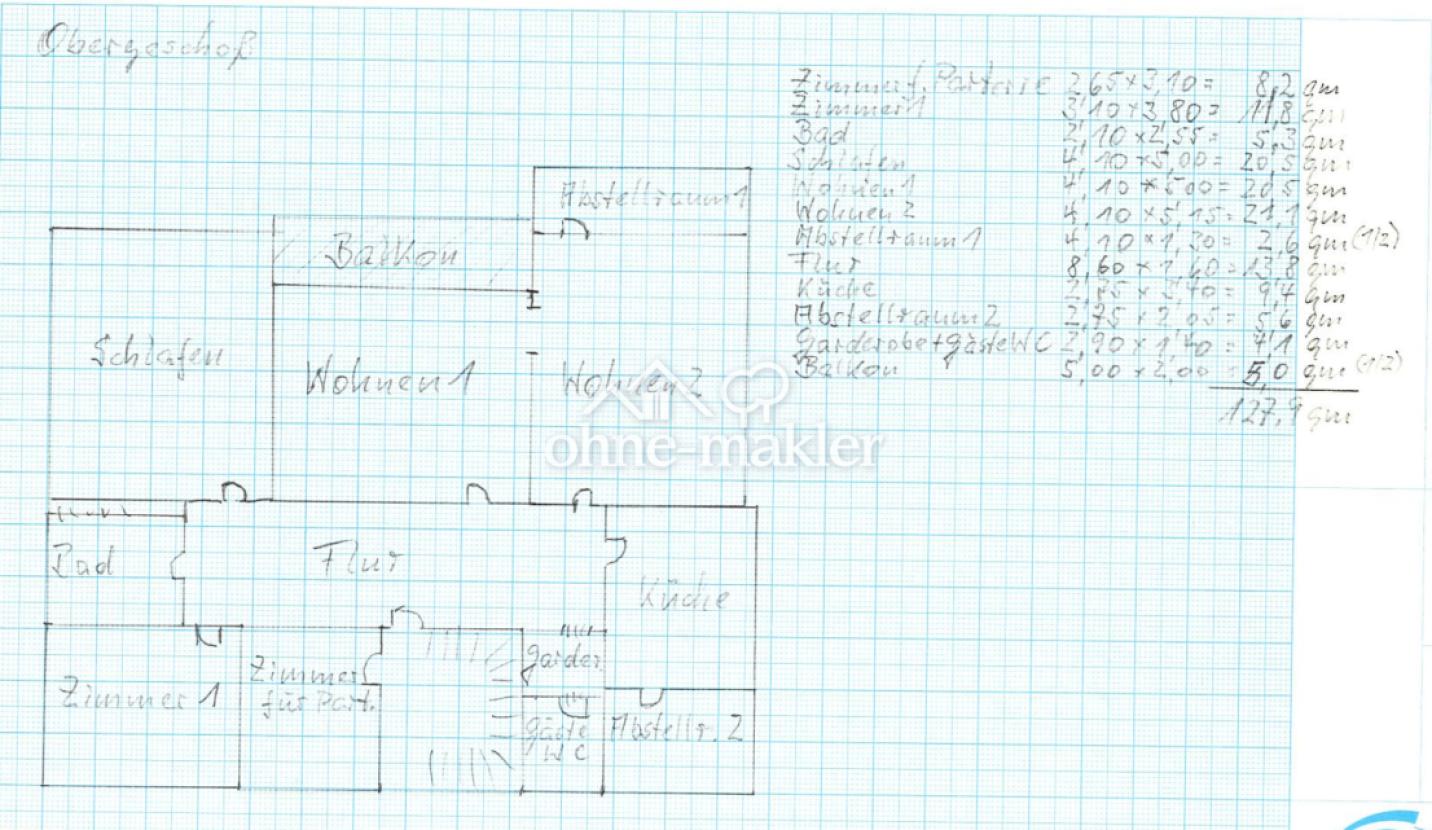 Obergeschoß
Zimmer f. Parterre 2,65 x 3,10 = 8,2 qm
Zimmer 1 3,10 x 3,80 = 11,8 qm
Bad 2,10 x 2,55 = 5,3 qm
Schlafen 4,10 x 5,00 = 20,5 qm
Wohnen 1 4,10 x 5,00 = 20,5 qm
Wohnen 2 4,10 x 5,15 = 21,1 qm
Abstellraum 1 4,10 x 1,30 = 2,6 qm (1/2)
Flur 8,60 x 1,60 = 13,8 qm
Küche 2,75 x 3,40 = 9,4 qm
Abstellraum 2 2,75 x 2,05 = 5,6 qm
Garderobe + Gäste WC 2,90 x 1,40 = 4,1 qm
Balkon 5,00 x 2,00 = 5,0 qm (1/2)
127,9 qm
Abstellraum 1
Balkon
Schlafen
Wohnen 1
Wohnen 2
ohne-makler
Bad
Flur
Küche
Zimmer 1
Zimmer
für Part.
Garder.
Gäste
WC
Abstellr. 2